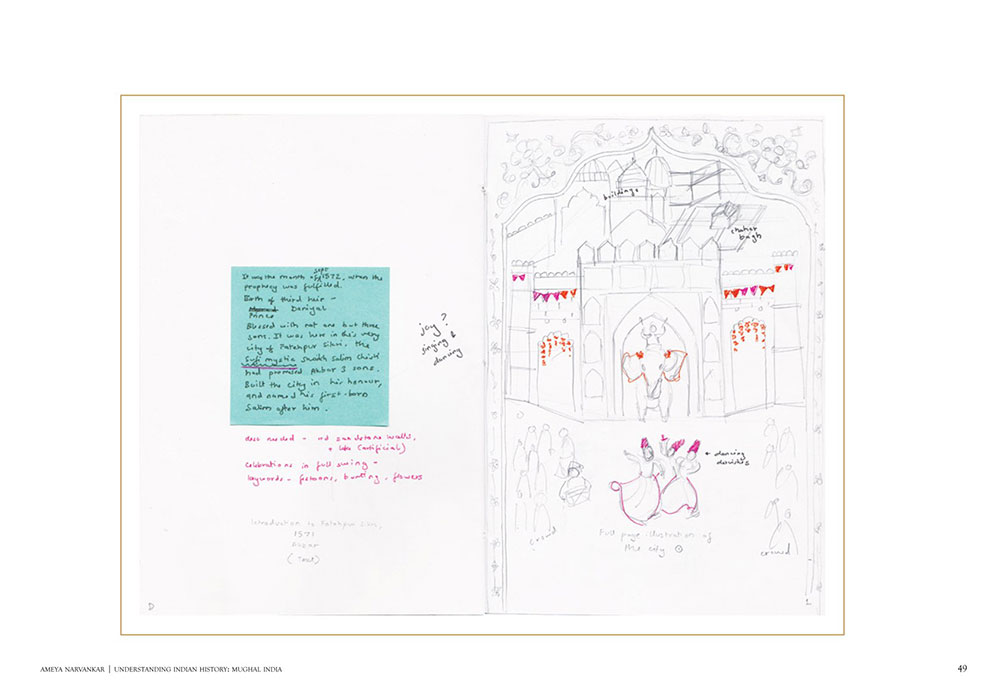 It was the month of Sept 1572, when the
prophecy was fulfilled.
Birth of third heir –
Prince Daniyal
Blessed with not one but three
sons. It was here in this very
city of Fatehpur Sikri, the
Sufi mystic Shaikh Salim Chisti
had promised Akbar 3 sons.
Built the city in his honour,
and named his first-born
Salim after him.
joy?
singing &
dancing
desc needed – red sandstone walls,
+ lake (artificial)
Celebrations in full swing –
keywords – festoons, bunting, flowers
Introduction to Fatehpur Sikri,
1571
(Text)
D
buildings
chahar
bagh
dancing
dervishes
crowd
Full page illustration of
the city
crowd
1
AMEYA NARVANKAR | UNDERSTANDING INDIAN HISTORY: MUGHAL INDIA
49